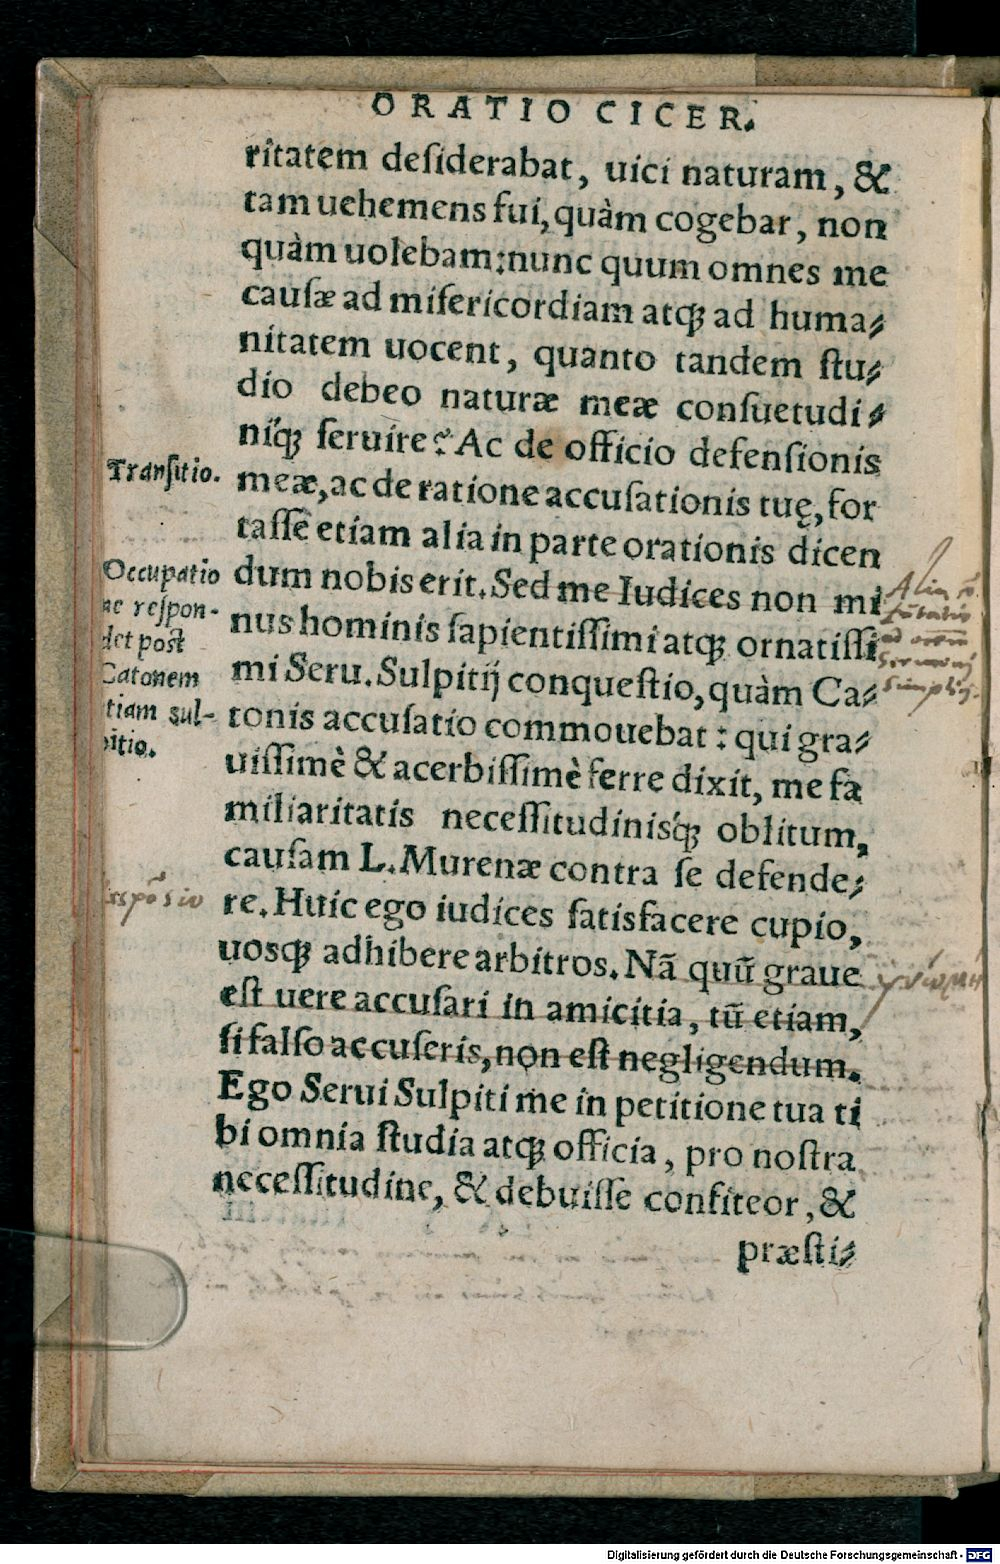 ORATIO CICER.
ritatem deſiderabat, uici naturam, &
tam uehemens fui, quàm cogebar, non
quàm uolebam: nunc quum omnes me
cauſæ ad miſericordiam atq; ad huma⸗
nitatem uocent, quanto tandem ſtu⸗
dio debeo naturæ meæ conſuetudi⸗
niq́; ſeruire? Ac de officio defenſionis
Tranſitio.
meæ, ac de ratione accuſationis tuę, for
taſſe etiam alia in parte orationis dicen
Occupatio
ne reſpon-
det poſt
Catonem
tiam sul-
pitio.
dum nobis erit. Sed me Iudices non mi
nus hominis ſapientiſſimi atq; ornatiſſi
mi Seru. Sulpitij conqueſtio, quàm Ca⸗
tonis accuſatio commouebat: qui gra⸗
uiſſimè & acerbiſſimè ferre dixit, me fa
miliaritatis neceſſitudinisq́; oblitum,
cauſam L. Murenæ contra ſe defende⸗
re. Huic ego iudices ſatisfacere cupio,
uosq; adhibere arbitros. Nã quũ graue
eſt uere accuſari in amicitia, tũ etiam,
ſi falſo accuſeris, non eſt negligendum.
Ego Serui Sulpiti me in petitione tua ti
bi omnia ſtudia atq; officia, pro noſtra
neceſſitudine, & debuiſſe confiteor, &
præſti⸗
Digitalisierung gefördert durch die Deutsche Forschungsgemeinschaft - DFG